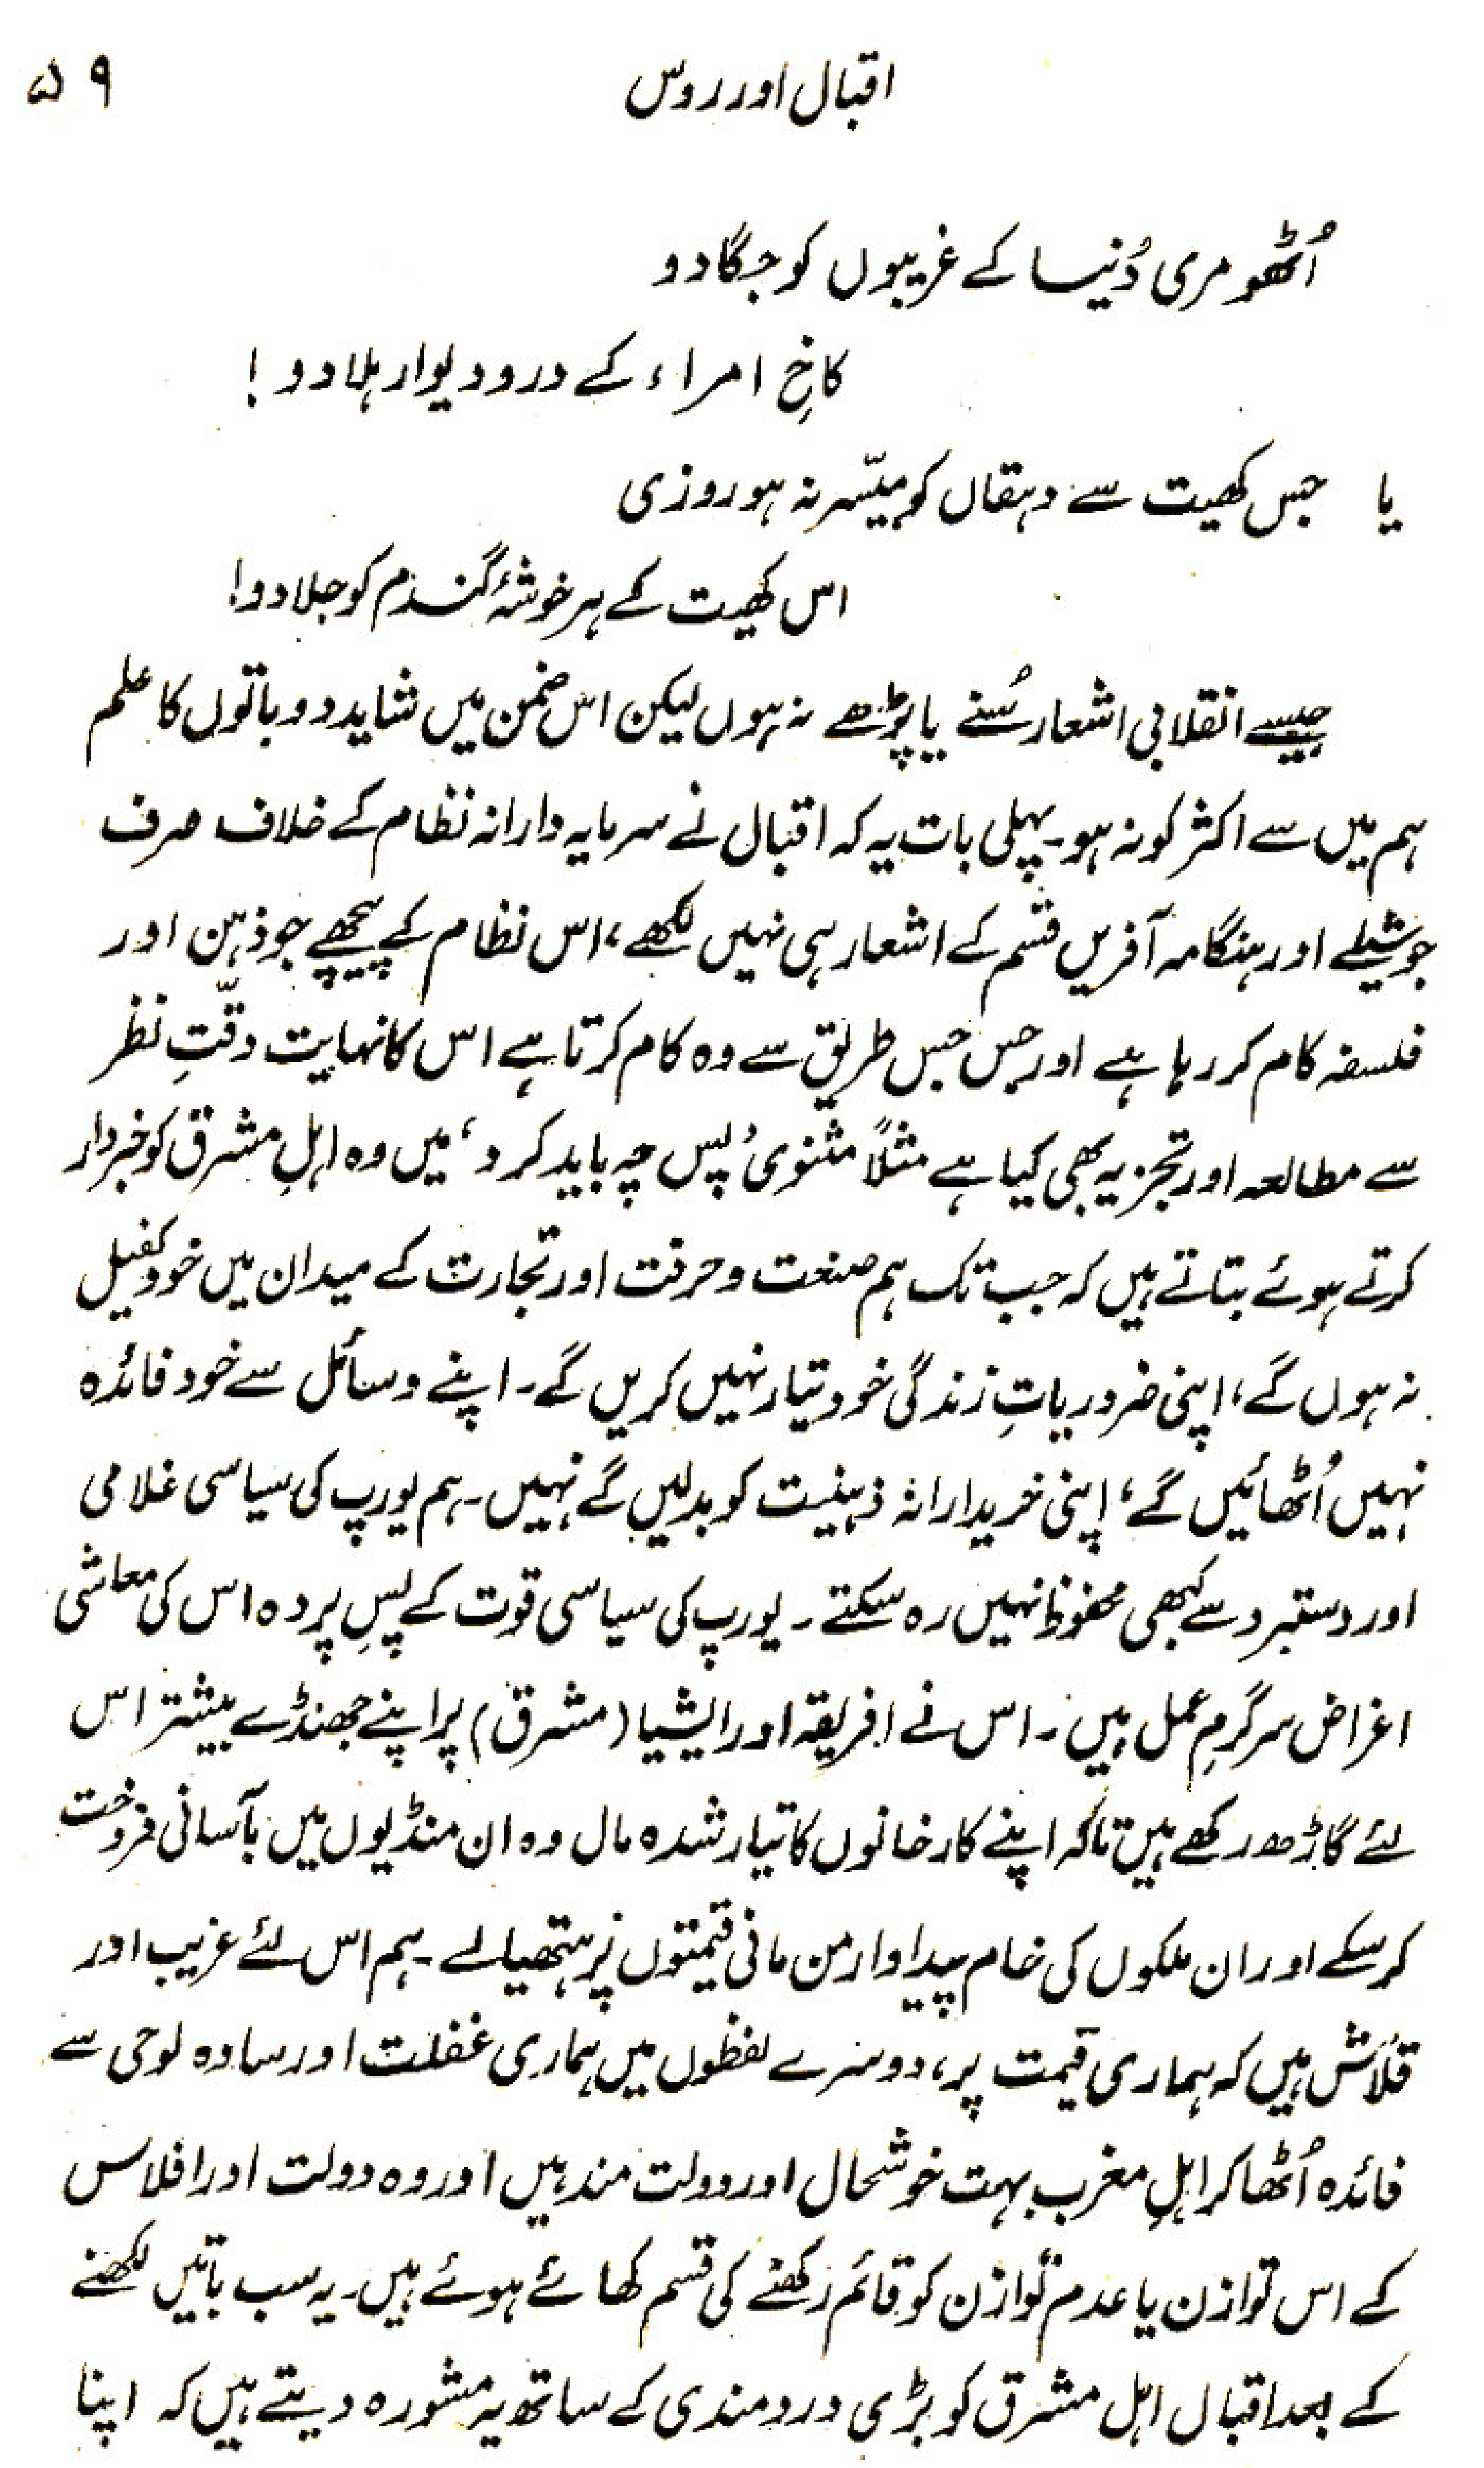 اقبال اور روس ۵۹
اُٹھو مری دُنیا کے غریبوں کو جگا دو
کاخِ امراء کے در و دیوار ہلا دو !
یا جس کھیت سے دہقاں کو میسّر نہ ہو روزی
اس کھیت کے ہر خوشۂ گندم کو جلا دو!
جیسے انقلابی اشعار سُنے یا پڑھے نہ ہوں لیکن اس ضمن میں شاید دو باتوں کا علم
ہم میں سے اکثر کو نہ ہو۔ پہلی بات یہ کہ اقبال نے سرمایہ دارانہ نظام کے خلاف صرف
جوشیلے اور ہنگامہ آفریں قسم کے اشعار ہی نہیں لکھے، اس نظام کے پیچھے جو ذہن اور
فلسفہ کام کر رہا ہے اور جس جس طریق سے وہ کام کرتا ہے اس کا نہایت دقّتِ نظر
سے مطالعہ اور تجزیہ بھی کیا ہے مثلاً مثنوی ’پس چہ باید کرد‘ میں وہ اہلِ مشرق کو خبردار
کرتے ہوئے بتاتے ہیں کہ جب تک ہم صنعت و حرفت اور تجارت کے میدان میں خود کفیل
نہ ہوں گے، اپنی ضروریاتِ زندگی خود تیار نہیں کریں گے۔ اپنے وسائل سے خود فائدہ
نہیں اُٹھائیں گے، اپنی خریدارانہ ذہنیت کو بدلیں گے نہیں۔ ہم یورپ کی سیاسی غلامی
اور دستبرد سے کبھی محفوظ نہیں رہ سکتے۔ یورپ کی سیاسی قوت کے پسِ پردہ اس کی معاشی
اغراض سرگرمِ عمل ہیں۔ اس نے افریقہ اور ایشیا (مشرق) پر اپنے جھنڈے بیشتر اس
لئے گاڑھ رکھے ہیں تاکہ اپنے کارخانوں کا تیار شدہ مال وہ ان منڈیوں میں بآسانی فروخت
کر سکے اور ان ملکوں کی خام پیداوار من مانی قیمتوں پر ہتھیالے۔ ہم اس لئے غریب اور
قلاش ہیں کہ ہماری قیمت پر، دوسرے لفظوں میں ہماری غفلت اور سادہ لوحی سے
فائدہ اُٹھا کر اہلِ مغرب بہت خوشحال اور دولت مند ہیں اور وہ دولت اور افلاس
کے اس توازن یا عدم توازن کو قائم رکھنے کی قسم کھائے ہوئے ہیں۔ یہ سب باتیں لکھنے
کے بعد اقبال اہل مشرق کو بڑی دردمندی کے ساتھ یہ مشورہ دیتے ہیں کہ اپنا